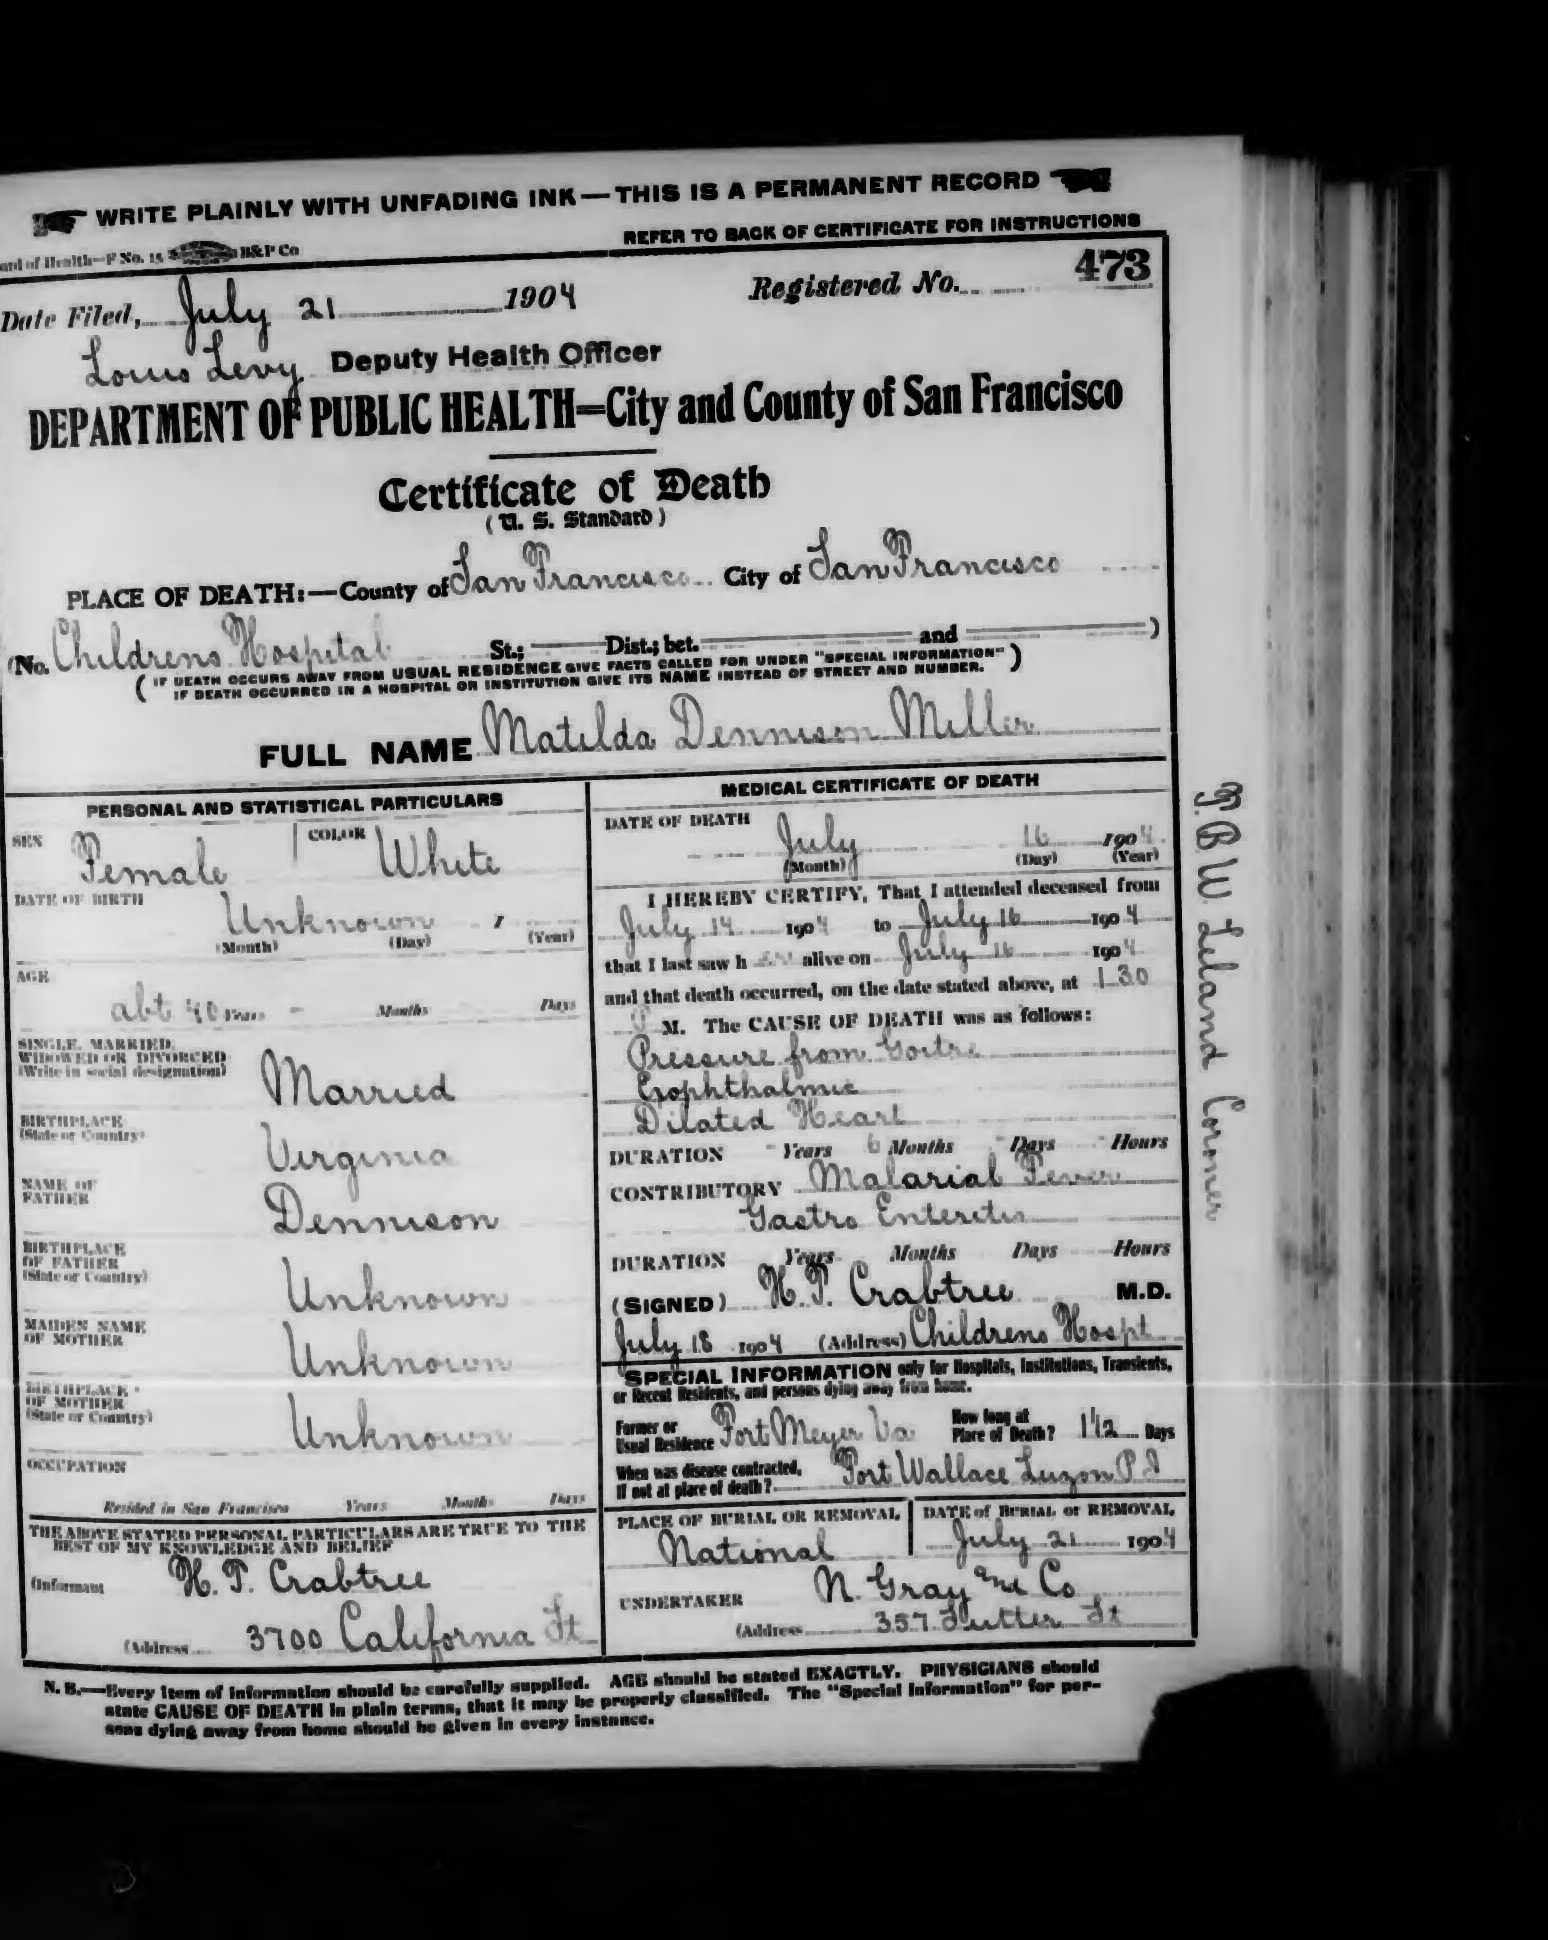 WRITE PLAINLY WITH UNFADING INK — THIS IS A PERMANENT RECORD
ard of Health—F No. 15 H&P Co
REFER TO BACK OF CERTIFICATE FOR INSTRUCTIONS
Date Filed, July 21 1904
Registered No. 473
Louis Levy Deputy Health Officer
DEPARTMENT OF PUBLIC HEALTH=City and County of San Francisco
Certificate of Death
(U. S. Standard)
PLACE OF DEATH:—County of San Francisco City of San Francisco
(No. Childrens Hospital St.; Dist.; bet. and )
(IF DEATH OCCURS AWAY FROM USUAL RESIDENCE GIVE FACTS CALLED FOR UNDER "SPECIAL INFORMATION"
IF DEATH OCCURRED IN A HOSPITAL OR INSTITUTION GIVE ITS NAME INSTEAD OF STREET AND NUMBER.)
FULL NAME Matilda Dennison Miller
PERSONAL AND STATISTICAL PARTICULARS
SEX Female COLOR White
DATE OF BIRTH
Unknown
(Month) (Day) (Year)
AGE
abt 40 Years - Months Days
SINGLE, MARRIED,
WIDOWED OR DIVORCED
(Write in social designation)
Married
BIRTHPLACE
(State or Country)
Virginia
NAME OF
FATHER
Dennison
BIRTHPLACE
OF FATHER
(State or Country)
Unknown
MAIDEN NAME
OF MOTHER
Unknown
BIRTHPLACE
OF MOTHER
(State or Country)
Unknown
OCCUPATION
Resided in San Francisco Years Months Days
THE ABOVE STATED PERSONAL PARTICULARS ARE TRUE TO THE
BEST OF MY KNOWLEDGE AND BELIEF
(Informant H. P. Crabtree
(Address 3700 California St
MEDICAL CERTIFICATE OF DEATH
DATE OF DEATH
July 16 1904
(Month) (Day) (Year)
I HEREBY CERTIFY, That I attended deceased from
July 14 1904 to July 16 1904
that I last saw h alive on July 16 1904
and that death occurred, on the date stated above, at 1.30
P M. The CAUSE OF DEATH was as follows:
Pressure from Goitre
Exophthalmic
Dilated Heart
DURATION - Years 6 Months - Days - Hours
CONTRIBUTORY Malarial Fever
Gastro Enteritis
DURATION Years Months Days Hours
(SIGNED) H. P. Crabtree M.D.
July 18 1904 (Address) Childrens Hospt
SPECIAL INFORMATION only for Hospitals, Institutions, Transients,
or Recent Residents, and persons dying away from home.
Former or
Usual Residence Fort Meyer Va
How long at
Place of Death? 1 1/2 Days
When was disease contracted,
If not at place of death? Fort Wallace Luzon P I
PLACE OF BURIAL OR REMOVAL
National
DATE of BURIAL or REMOVAL
July 21 1904
UNDERTAKER N. Gray and Co
(Address 357 Sutter St
T. B W Leland Coroner
N. B.—Every item of information should be carefully supplied. AGE should be stated EXACTLY. PHYSICIANS should
state CAUSE OF DEATH in plain terms, that it may be properly classified. The "Special Information" for per-
sons dying away from home should be given in every instance.